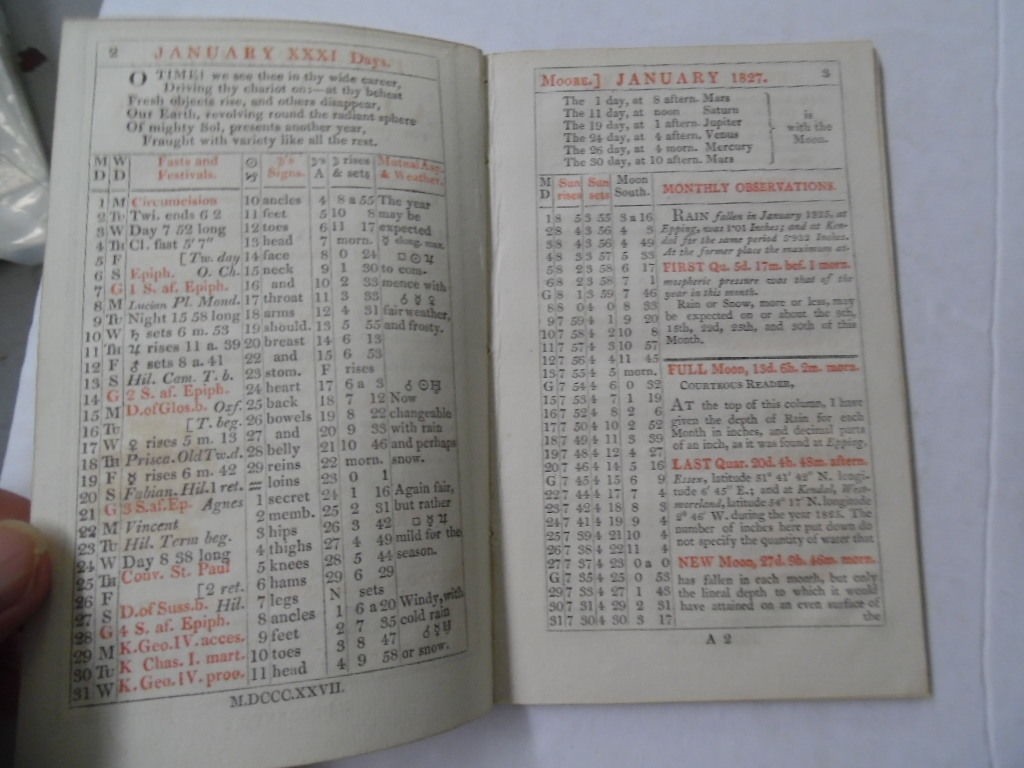 2 JANUARY XXXI Days.
O TIME! we see thee in thy wide career,
Driving thy chariot on:—at thy behest
Fresh objects rise, and others disappear,
Our Earth, revolving round the radiant sphere
Of mighty Sol, presents another year,
Fraught with variety like all the rest.
M D W D Fasts and Festivals. ☉ ♑ ☽'s Signs. ☽'s A ☽ rises & sets Mutual Asp. & Weather.
1 M Circumcision 10 ancles 4 8 a 55 The year
2 Tu Twi. ends 6 2 11 feet 5 10 8 may be
3 W Day 7 52 long 12 toes 6 11 17 expected
4 Th Cl. fast 5'7" 13 head 7 morn. ☿ elong. max.
5 F [Tw. day 14 face 8 0 24 □ ☉ ♃
6 S Epiph. O. Ch. 15 neck 9 1 30 to com-
7 G 1 S. af. Epiph. 16 and 10 2 33 mence with
8 M Lucian Pl. Mond. 17 throat 11 3 33 ☌ ☿ ♀
9 Tu Night 15 58 long 18 arms 12 4 31 fair weather,
10 W ♄ sets 6 m. 53 19 should. 13 5 55 and frosty.
11 Th ♃ rises 11 a. 39 20 breast 14 6 13
12 F ♂ sets 8 a. 41 22 and 15 6 53
13 S Hil. Cam. T. b. 23 stom. F rises
14 G 2 S. af. Epiph. 24 heart 17 6 a 3 ☌ ☉ ♅
15 M D. of Glos. b. Oxf. 25 back 18 7 12 Now
16 Tu [T. beg. 26 bowels 19 8 22 changeable
17 W ♀ rises 5 m. 13 27 and 20 9 33 with rain
18 Th Prisca. Old Tw. d. 28 belly 21 10 46 and perhaps
19 F ☿ rises 6 m. 42 29 reins 22 morn. snow.
20 S Fabian. Hil. 1 ret. ♒ loins 23 0 1
21 G 3 S. af. Ep. Agnes 1 secret 24 1 16 Again fair,
22 M Vincent 2 memb. 25 2 31 but rather
23 Tu Hil. Term beg. 3 hips 26 3 42 □ ☿ ♃
24 W Day 8 38 long 4 thighs 27 4 49 mild for the
25 Th Conv. St. Paul 5 knees 28 5 44 season.
26 F [2 ret. 6 hams 29 6 29
27 S D. of Suss. b. Hil. 7 legs N sets
28 G 4 S. af. Epiph. 8 ancles 1 6 a 20 Windy, with
29 M K. Geo. IV. acces. 9 feet 2 7 35 cold rain
30 Tu K Chas. I. mart. 10 toes 3 8 47 ☌ ☿ ♅
31 W K. Geo. IV. proc. 11 head 4 9 58 or snow.
M.DCCC.XXVII.
MOORE.] JANUARY 1827. 3
The 1 day, at 8 aftern. Mars
The 11 day, at noon Saturn
The 19 day, at 1 aftern. Jupiter
The 24 day, at 4 aftern. Venus
The 26 day, at 4 morn. Mercury
The 30 day, at 10 aftern. Mars
is with the Moon.
M D Sun rises Sun sets Moon South. MONTHLY OBSERVATIONS.
1 8 5 3 55 3 a 16
2 8 4 3 56 4 3
3 8 4 3 56 4 49
4 8 3 3 57 5 33
5 8 2 3 58 6 17
6 8 2 3 58 7 1
G 8 1 3 59 7 46
8 8 0 4 0 8 33
9 7 59 4 1 9 20
10 7 58 4 2 10 8
11 7 57 4 3 10 57
12 7 56 4 4 11 45
13 7 55 4 5 morn.
G 7 54 4 6 0 32
15 7 53 4 7 1 19
16 7 52 4 8 2 6
17 7 50 4 10 2 52
18 7 49 4 11 3 39
19 7 48 4 12 4 27
20 7 46 4 14 5 16
G 7 45 4 15 6 9
22 7 44 4 17 7 4
23 7 42 4 18 8 3
24 7 41 4 19 9 4
25 7 39 4 21 10 4
26 7 38 4 22 11 4
27 7 37 4 23 0 a 0
G 7 35 4 25 0 53
29 7 33 4 27 1 43
30 7 31 4 29 2 31
31 7 30 4 30 3 17
RAIN fallen in January 1825, at
Epping, was 1·01 Inches; and at Ken-
dal for the same period 5·922 Inches.
At the former place the maximum at-
FIRST Qu. 5d. 17m. bef. 1 morn.
mospheric pressure was that of the
year in this month.
Rain or Snow, more or less, may
be expected on or about the 8th,
15th, 22d, 25th, and 30th of this
Month.
FULL Moon, 13d. 6h. 2m. morn.
COURTEOUS READER,
AT the top of this column, I have
given the depth of Rain for each
Month in inches, and decimal parts
of an inch, as it was found at Epping,
LAST Quar. 20d. 4h. 48m. aftern.
Essex, latitude 51° 41' 42" N. longi-
tude 6' 45" E.; and at Kendal, West-
moreland, latitude 54° 17' N. longitude
2° 46' W. during the year 1825. The
number of inches here put down do
not specify the quantity of water that
NEW Moon, 27d. 9h. 46m. morn.
has fallen in each month, but only
the lineal depth to which it would
have attained on an even surface of
the
A 2